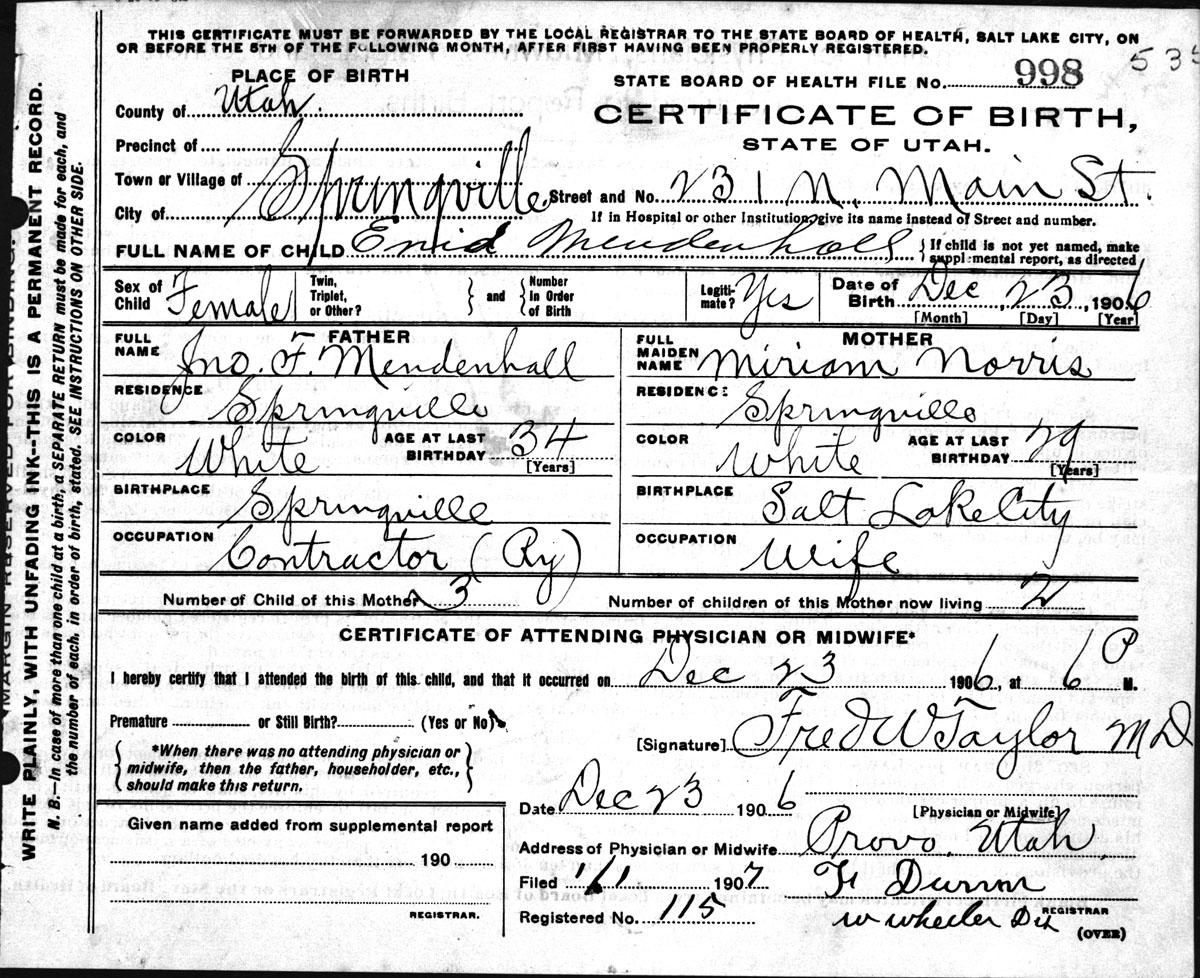 THIS CERTIFICATE MUST BE FORWARDED BY THE LOCAL REGISTRAR TO THE STATE BOARD OF HEALTH, SALT LAKE CITY, ON
OR BEFORE THE 5TH OF THE FOLLOWING MONTH, AFTER FIRST HAVING BEEN PROPERLY REGISTERED.
535
PLACE OF BIRTH
STATE BOARD OF HEALTH FILE No. 998
County of Utah.
CERTIFICATE OF BIRTH,
Precinct of
STATE OF UTAH.
Town or Village of
City of Springville
Street and No. 231 N. Main St.
If in Hospital or other Institution, give its name instead of Street and number.
FULL NAME OF CHILD Enid Mendenhall { If child is not yet named, make
supplemental report, as directed
Sex of Child Female
Twin, Triplet, or Other? } and { Number in Order of Birth
Legiti- mate? Yes
Date of Birth Dec 23, 1906
[Month] [Day] [Year]
FATHER
FULL NAME Jno. F. Mendenhall
RESIDENCE Springville
COLOR White AGE AT LAST BIRTHDAY 34
[Years]
BIRTHPLACE Springville
OCCUPATION Contractor (Ry)
MOTHER
FULL MAIDEN NAME Miriam Norris
RESIDENCE Springville
COLOR White AGE AT LAST BIRTHDAY 29
[Years]
BIRTHPLACE Salt Lake City
OCCUPATION Wife
Number of Child of this Mother 3 Number of children of this Mother now living 2
CERTIFICATE OF ATTENDING PHYSICIAN OR MIDWIFE*
I hereby certify that I attended the birth of this child, and that it occurred on Dec 23 1906, at 6 P M.
Premature or Still Birth? (Yes or No)
[Signature] Fred W Taylor MD
*When there was no attending physician or
midwife, then the father, householder, etc.,
should make this return.
Date Dec 23 1906
[Physician or Midwife]
Given name added from supplemental report
190
REGISTRAR.
Address of Physician or Midwife Provo, Utah.
Filed 1/1 1907
Registered No. 115
W Wheeler
REGISTRAR
(OVER)
MARGIN RESERVED FOR BINDING.
WRITE PLAINLY, WITH UNFADING INK--THIS IS A PERMANENT RECORD.
N. B.—In case of more than one child at a birth, a SEPARATE RETURN must be made for each, and
the number of each, in order of birth, stated. SEE INSTRUCTIONS ON OTHER SIDE.